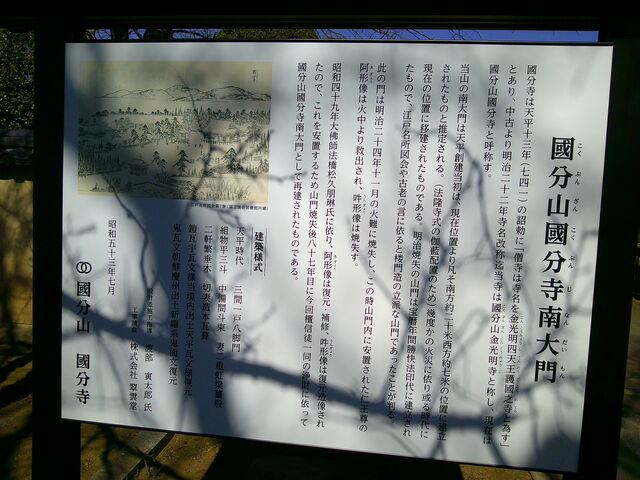 國分山國分寺南大門
こく ぶん ざん こく ぶん じ なん だい もん
國分寺は天平十三年(七四一)の詔勅に「僧寺は寺名を金光明四天王護國之寺と為す」
とあり、中古より明治二十二年寺名改称迄当寺は國分山金光明寺と称し、現在は
國分山國分寺と呼称す。
当山の南大門は天平創建当初は、現在位置より凡そ南方約二十米西方約七米の位置に建立
されたものと推定される。(法隆寺式の伽藍配置のため)幾度かの火災に依り或る時代に
現在の位置に移建されたものである。明治焼失の山門は宝暦年間勝快法印代に建立され
たもので、江戸名所図会や古老の言に依ると楼門造の立派な山門であったことが判る。
此の門は明治二十四年十一月の火難に焼失し、この時山門内に安置されたた仁王尊の
阿形像は火中より救出され、吽形像は焼失す。
昭和四十九年大佛師法橋松久朋琳氏に依り、阿形像は復元・補修、吽形像は復元造像され
たので、これを安置するため山門焼失後八十七年目に今回檀信徒一同の浄財に依って
國分山國分寺南大門として再建されたものである。
建築様式
天平時代 三間一戸八脚門
組物平三斗 中備間斗束 妻二重虹梁蟇股
二軒繁垂木 切妻造本瓦葺
鐙瓦宇瓦文様当境内出土天平瓦文様復元
鬼瓦文朝鮮慶州出土新羅系鬼面文復元
設計並施工指導 渡部 寅太郎 氏
工事請負 株式会社 翠雲堂
昭和五十三年七月
國分山 國分寺